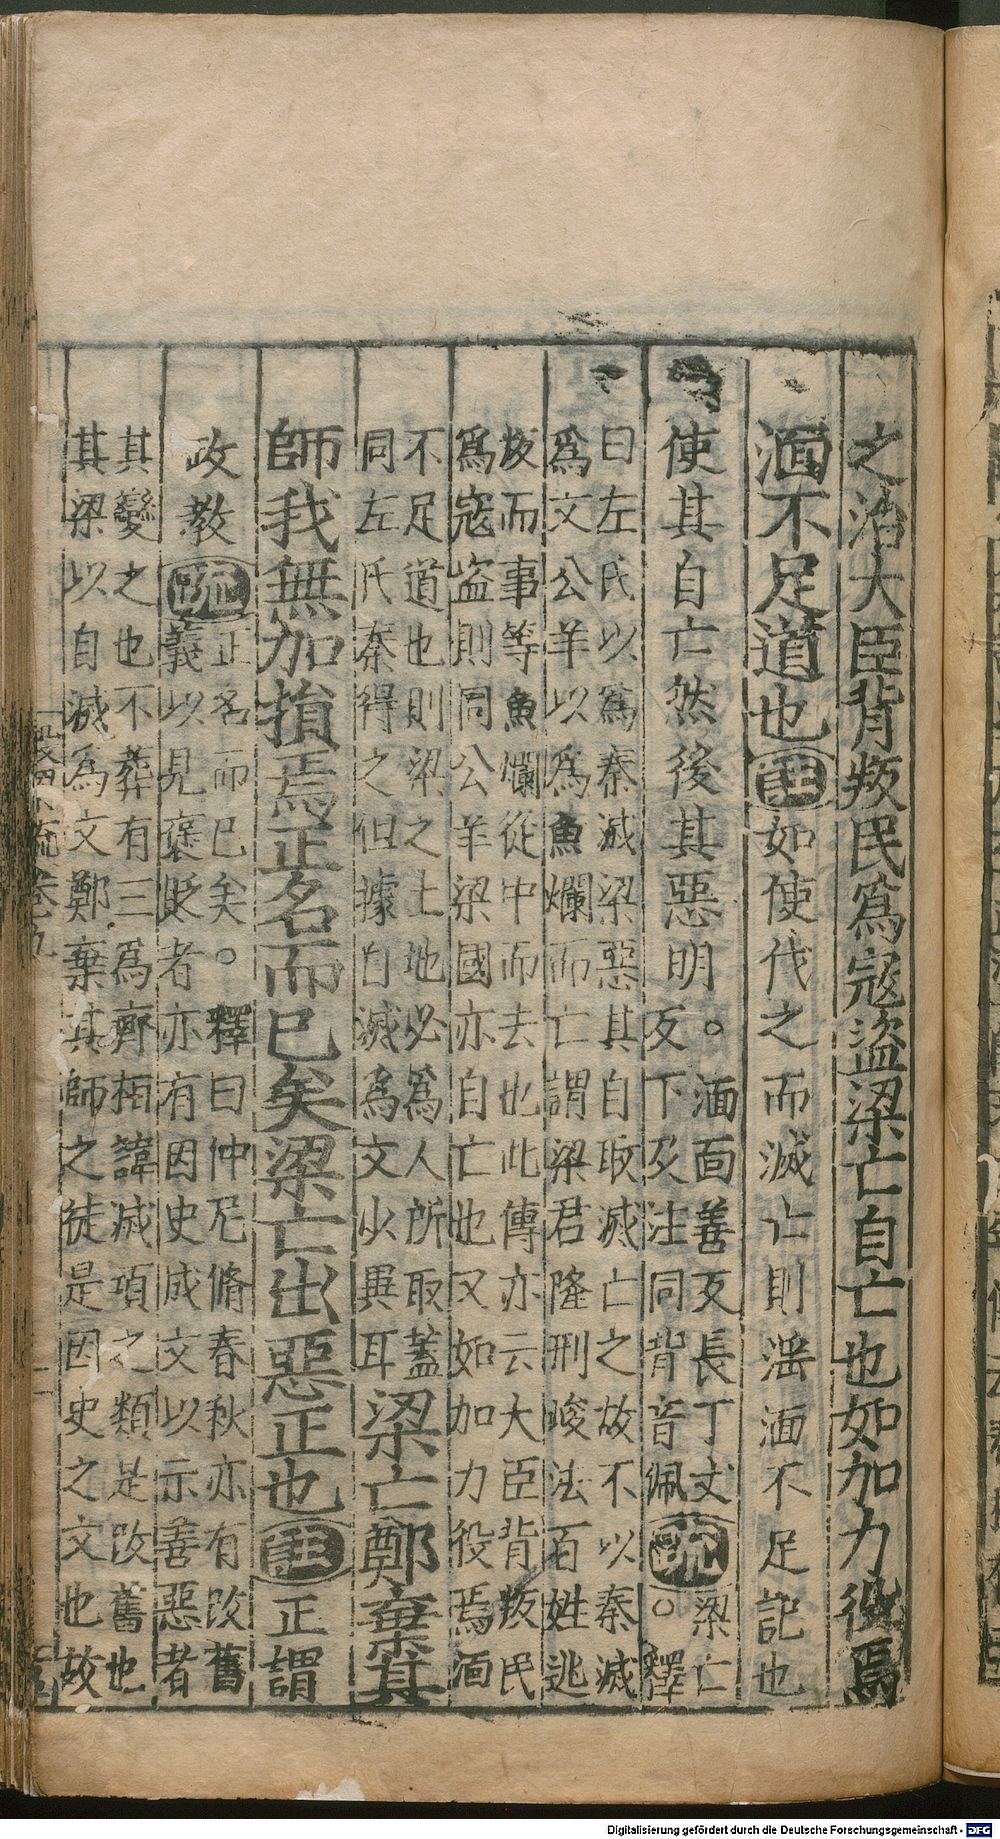 之治大臣背叛民爲寇盜梁亡自亡也如加力役焉
湎不足道也註如使伐之而滅亡則淫湎不足記也
使其自亡然後其惡明○湎面善反長丁丈
反下及注同背音佩疏梁亡○釋
曰左氏以爲秦滅梁惡其自取滅亡之故不以秦滅
爲文公羊以爲魚爛而亡謂梁君隆刑峻法百姓逃
叛而事等魚爛從中而去也此傳亦云大臣背叛民
爲寇盜則同公羊梁國亦自亡也又如加力役焉湎
不足道也則梁之土地必爲人所取蓋
同左氏秦得之但據自滅爲文少異耳梁亡鄭棄其
師我無加損焉正名而已矣梁亡出惡正也註正謂
政教疏正名而已矣。釋曰仲尼脩春秋亦有改舊
義以見褒貶者亦有因史成文以示善惡者
其變之也不葬有三爲齊桓諱滅項之類是改舊也
其梁以自滅爲文鄭棄其師之徒是因史之文也故
Digitalisierung gefördert durch die Deutsche Forschungsgemeinschaft - DFG